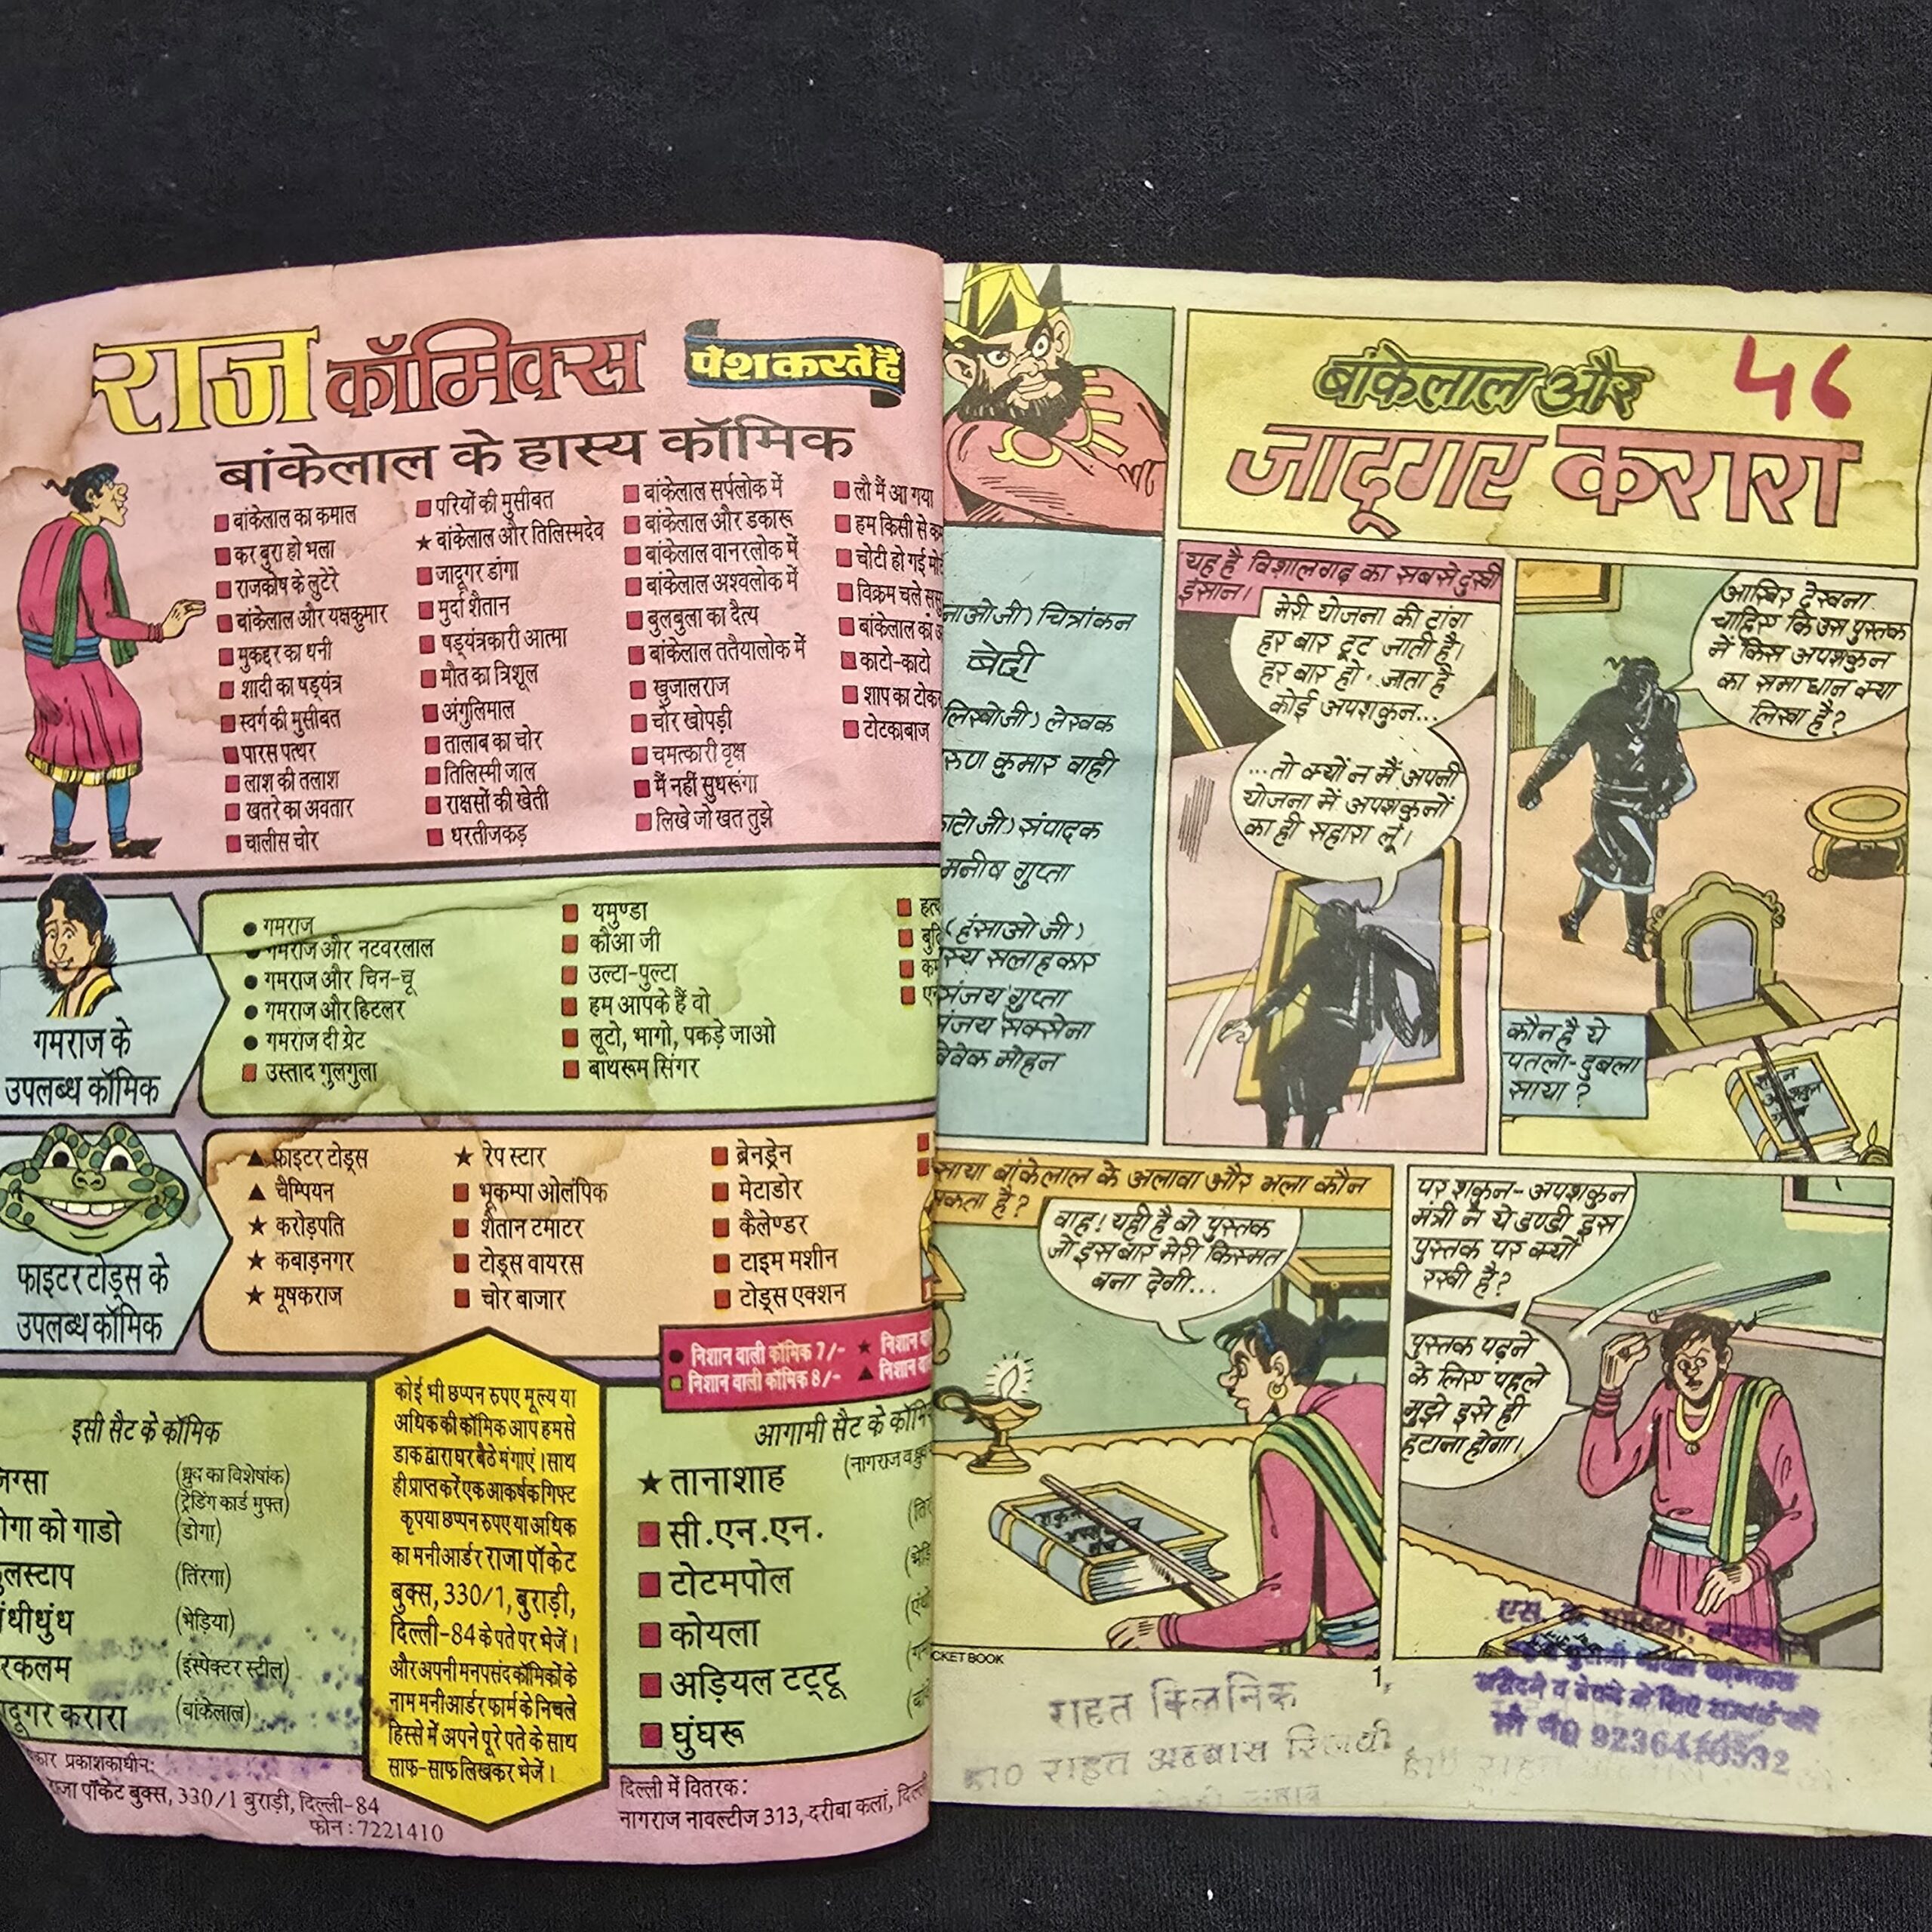 राज कॉमिक्स पेश करते हैं
बांकेलाल के हास्य कॉमिक
बांकेलाल का कमाल
कर बुरा हो भला
राजकोष के लुटेरे
बांकेलाल और यक्षकुमार
मुकद्दर का धनी
शादी का षड्यंत्र
स्वर्ग की मुसीबत
पारस पत्थर
लाश की तलाश
खतरे का अवतार
चालीस चोर
परियों की मुसीबत
★ बांकेलाल और तिलिस्मदेव
जादूगर डोंगा
मुर्दा शैतान
षड्यंत्रकारी आत्मा
मौत का त्रिशूल
अंगुलिमाल
तालाब का चोर
तिलिस्मी जाल
राक्षसों की खेती
धरतीजकड़
बांकेलाल सर्पलोक में
बांकेलाल और डकारू
बांकेलाल वानरलोक में
बांकेलाल अश्वलोक में
बुलबुला का दैत्य
बांकेलाल ततैयालोक में
खुजालराज
चोर खोपड़ी
चमत्कारी वृक्ष
मैं नहीं सुधरूंगा
लिखे जो खत तुझे
लौ मैं आ गया
हम किसी से
चोटी हो गई
विक्रम चले
बांकेलाल का
काटो-काटो
शाप का
टोटकाबाज
गमराज के
उपलब्ध कॉमिक
● गमराज
● गमराज और नटवरलाल
● गमराज और चिन-चू
● गमराज और हिटलर
● गमराज दी ग्रेट
उस्ताद गुलगुला
यमुण्डा
कौआ जी
उल्टा-पुल्टा
हम आपके हैं वो
लूटो, भागो, पकड़े जाओ
बाथरूम सिंगर
फाइटर टोड्स के
उपलब्ध कॉमिक
▲ फाइटर टोड्स
▲ चैम्पियन
★ करोड़पति
★ कबाड़नगर
★ मूषकराज
★ रेप स्टार
भूकम्पा ओलंपिक
शैतान टमाटर
टोड्स वायरस
चोर बाजार
ब्रेनड्रेन
मेटाडोर
कैलेण्डर
टाइम मशीन
टोड्स एक्शन
● निशान वाली कॉमिक 7/- ★ निशान
■ निशान वाली कॉमिक 8/- ▲ निशान
इसी सैट के कॉमिक
(ध्रुव का विशेषांक)
(ट्रेडिंग कार्ड मुफ्त)
को गाडो (डोगा)
(तिरंगा)
(भेड़िया)
(इंस्पेक्टर स्टील)
करारा (बांकेलाल)
कोई भी छप्पन रुपए मूल्य या
अधिक की कॉमिक आप हमसे
डाक द्वारा घर बैठे मंगाएं। साथ
ही प्राप्त करें एक आकर्षक गिफ्ट
कृपया छप्पन रुपए या अधिक
का मनीआर्डर राजा पॉकेट
बुक्स, 330/1, बुराड़ी,
दिल्ली-84 के पते पर भेजें।
और अपनी मनपसंद कॉमिकों के
नाम मनीआर्डर फार्म के निचले
हिस्से में अपने पूरे पते के साथ
साफ-साफ लिखकर भेजें।
आगामी सैट के
★ तानाशाह (नागराज व
सी.एन.एन.
टोटमपोल
कोयला
अड़ियल टट्टू
घुंघरू
प्रकाशकाधीन:
पॉकेट बुक्स, 330/1 बुराड़ी, दिल्ली-84
फोन : 7221410
दिल्ली में वितरक:
नागराज नावल्टीज 313, दरीबा कलां,
चित्रांकन
बेदी
लेखक
कुमार वाही
संपादक
मनीष गुप्ता
(हंसाओ जी)
सलाहकार
संजय गुप्ता
संजय सक्सेना
विवेक मोहन
बांकेलाल और
जादूगर करारा
56
यह है विशालगढ़ का सबसे दुखी
इंसान।
मेरी योजना की टांग
हर बार टूट जाती है।
हर बार हो जाता है
कोई अपशकुन...
...तो क्यों न मैं अपनी
योजना में अपशकुनों
का ही सहारा लूं।
आखिर देखना
चाहिए कि उस पुस्तक
में किस अपशकुन
का समाधान क्या
लिखा है?
कौन है ये
पतला-दुबला
साया?
साया बांकेलाल के अलावा और भला कौन
सकता है?
वाह! यही है वो पुस्तक
जो इस बार मेरी किस्मत
बना देगी...
पर शकुन-अपशकुन
मंत्री ने ये डण्डी इस
पुस्तक पर क्यों
रखी है?
पुस्तक पढ़ने
के लिए पहले
मुझे इसे ही
हटाना होगा।
1
राहत क्लिनिक
राहत अब्बास रिजवी
एस. के.
खरीदने व बेचने के लिए सम्पर्क करें